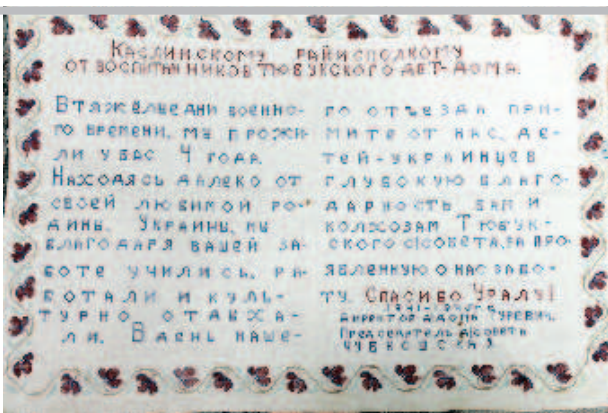 КАСЛИНСКОМУ РАЙИСПОЛКОМУ
ОТ ВОСПИТАННИКОВ ТЮБУКСКОГО ДЕТ-ДОМА.
В ТЯЖЁЛЫЕ ДНИ ВОЕННО-
ГО ВРЕМЕНИ, МЫ ПРОЖИ
ЛИ У ВАС 4 ГОДА.
НАХОДЯСЬ ДАЛЕКО ОТ
СВОЕЙ ЛЮБИМОЙ РО-
ДИНЫ. УКРАИНЫ, МЫ
БЛАГОДАРЯ ВАШЕЙ ЗА-
БОТЕ УЧИЛИСЬ, РА-
БОТАЛИ И КУЛЬ-
ТУРНО ОТДЫХА-
ЛИ. В ДЕНЬ НАШЕ-
ГО ОТЪЕЗДА ПРИ-
МИТЕ ОТ НАС, ДЕ-
ТЕЙ-УКРАИНЦЕВ
ГЛУБОКУЮ БЛАГО-
ДАРНОСТЬ ВАМ И
КОЛХОЗАМ ТЮБУК-
СКОГО С/СОВЕТА, ЗА ПРО-
ЯВЛЕННУЮ О НАС ЗАБО-
ТУ. СПАСИБО УРАЛУ!
ДИРЕКТОР Д/ДОМА ГУРЕВИЧ.
ПРЕДСЕДАТЕЛЬ